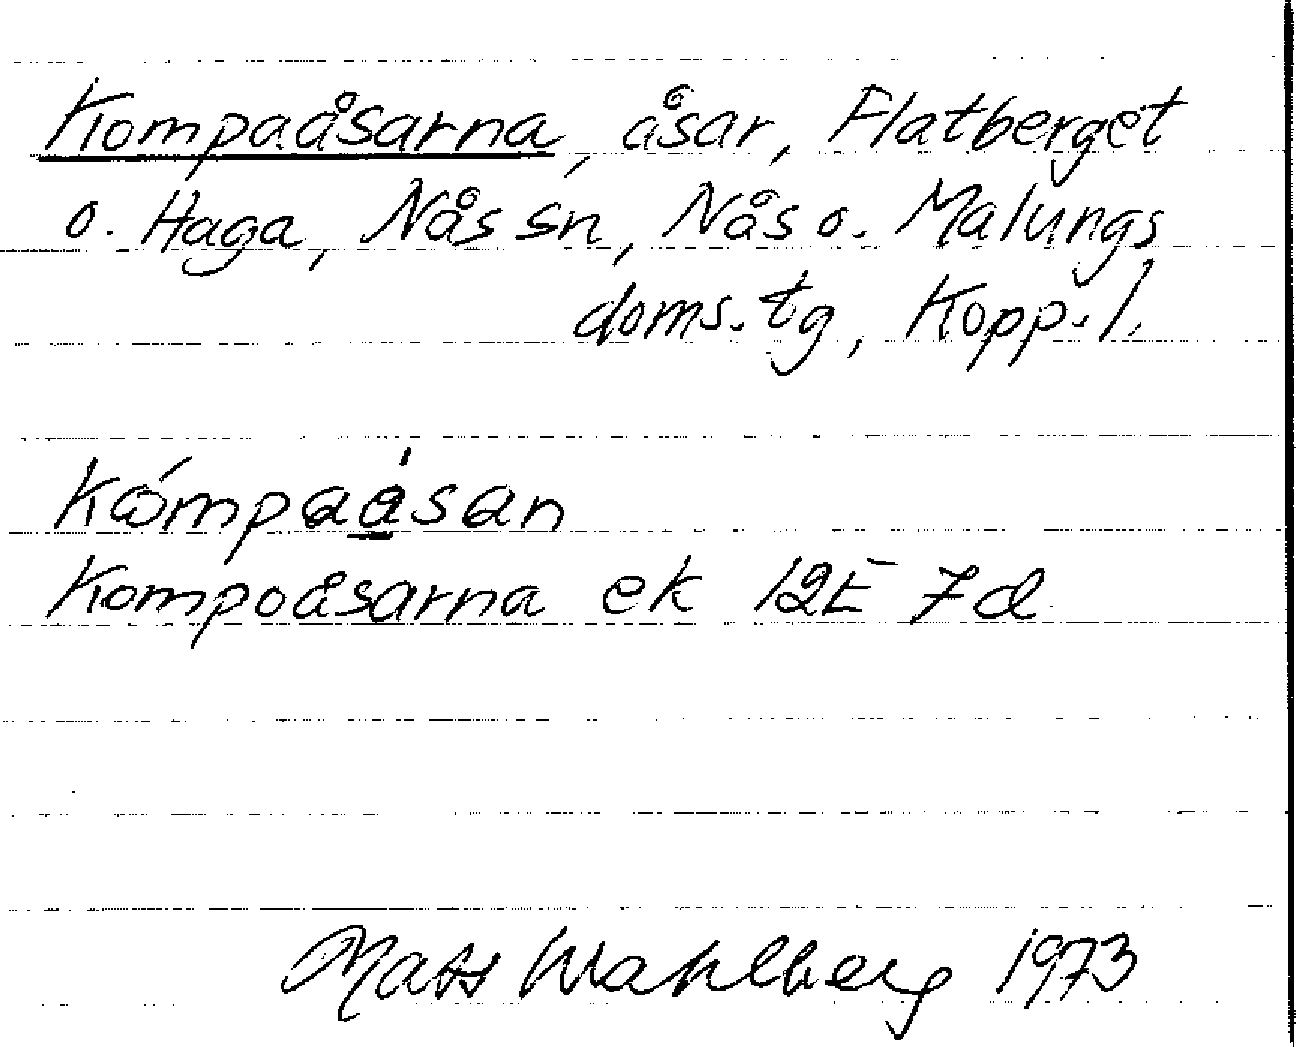 Kompaåsarna, åsar, Flatberget
o. Haga, Nås sn, Nås o. Malungs
doms. tg, Kopp. l.
kómpaa̲̍san
Kompoåsarna ek 12E 7d
Mats Wahlberg 1973